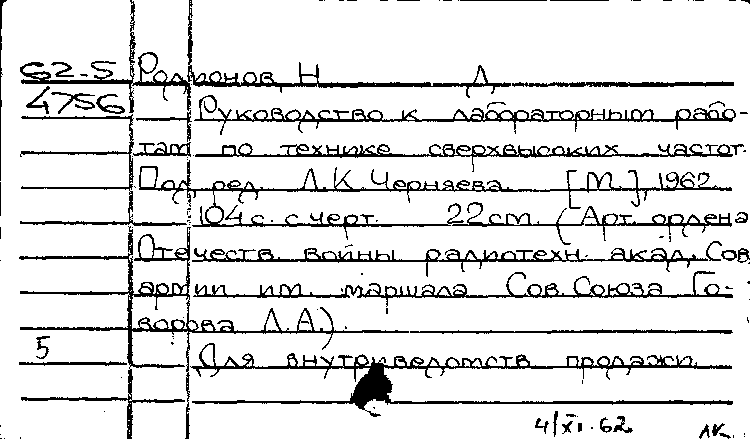 62-5 Родионов, Н Д
4756 Руководство к лабораторным рабо-
там по технике сверхвысоких частот.
Под ред. Л.К. Черняева. [М.], 1962
104 с. с черт. 22 см. (Арт. ордена
Отечеств. войны радиотехн. акад. Сов.
армии им. маршала Сов. Союза Го-
ворова Л.А.).
5 Для внутриведомств. продажи.
4/XI.62